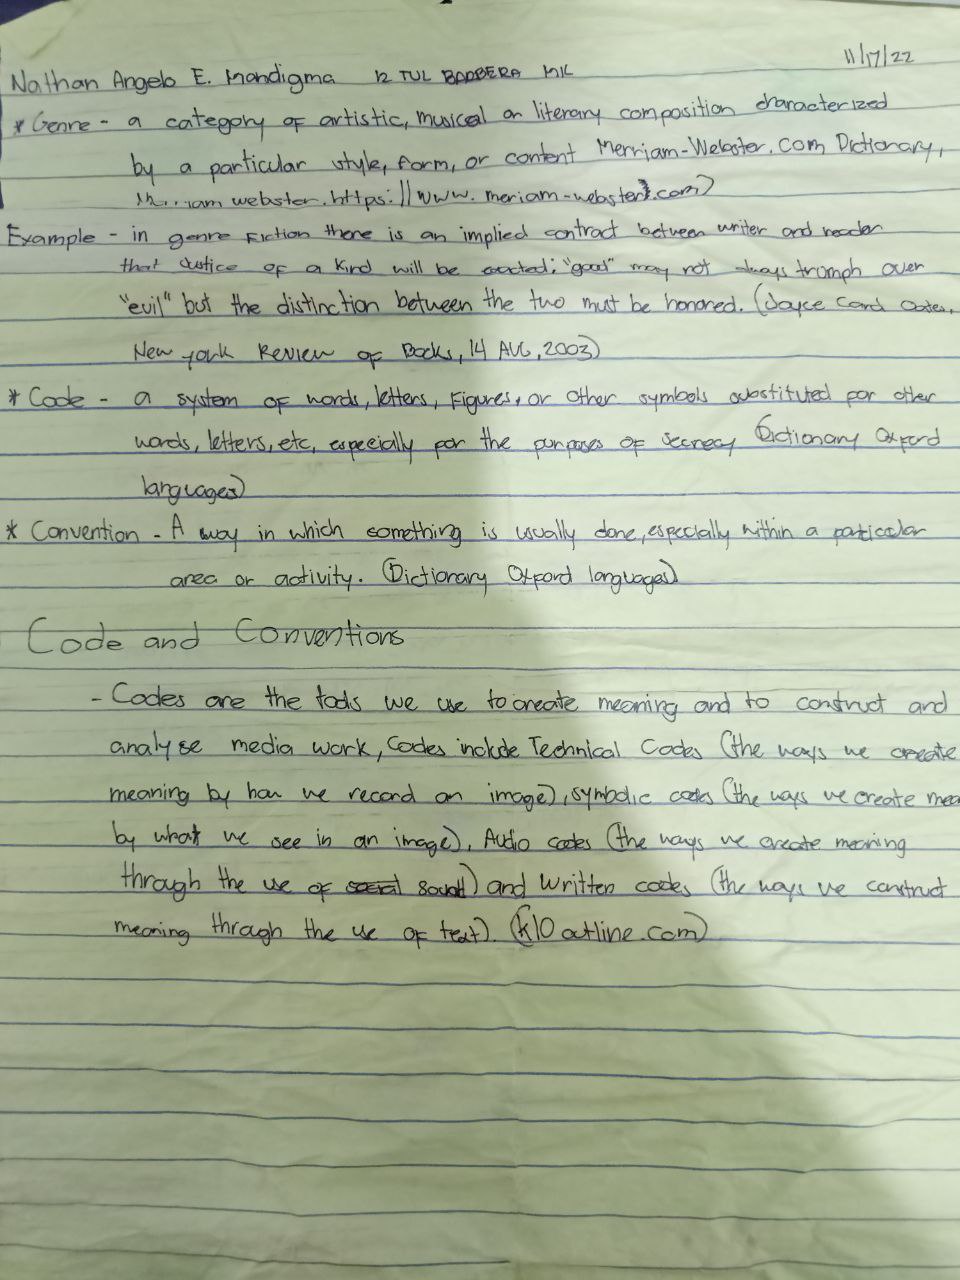 11/17/22
Nathan Angelo E. Mandigma 12 TUL BARBERA MIL
* Genre - a category of artistic, musical or literary composition characterized
by a particular style, form, or content Merriam-Webster.com Dictionary,
webster.https://www.meriam-webster.com)
Example - in genre Fiction there is an implied contract between writer and reader
that justice of a kind will be exacted; "good" may not always tromph over
"evil" but the distinction between the two must be honored. (Joyce Carol Oates,
New york Review of Books, 14 AUG, 2003)
* Code - a system of words, letters, Figures, or other symbols substituted for other
words, letters, etc, especially for the purposes of secrecy (Dictionary Oxford
languages)
* Convention - A way in which something is usually done, especially within a particular
area or activity. (Dictionary Oxford languages)
Code and Conventions
- Codes are the tools we use to create meaning and to construct and
analyse media work, Codes include Technical Codes (the ways we create
meaning by how we record an image), symbolic codes (the ways we create mea
by what we see in an image), Audio codes (the ways we create meaning
through the use of sound) and Written codes (the ways we construct
meaning through the use of text). (k10 outline.com)